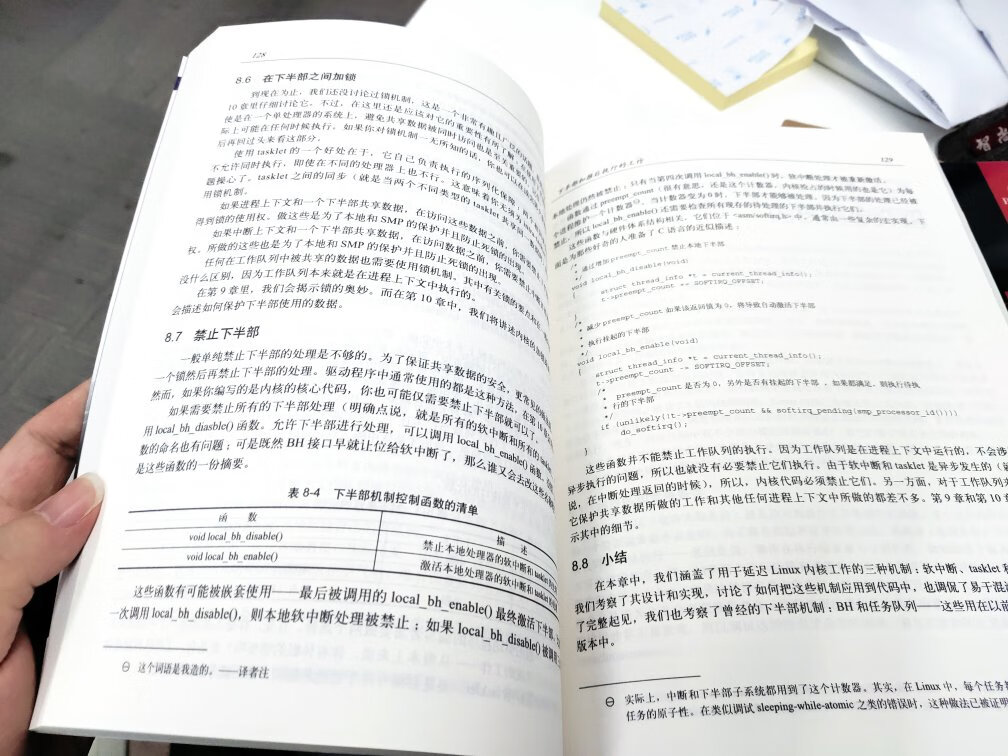 128
8.6 在下半部之间加锁
到现在为止，我们还没讨论过锁机制，这是一个非常有趣且广泛的话题
10 章里仔细讨论它。不过，在这里还是应该对它的重要性有所了解
使是在一个单处理器的系统上，避免共享数据被同时访问也是至关重要的
际上可能在任何时候执行。如果你对锁机制一无所知的话，你也可以在
后再回过头来看这部分。
使用 tasklet 的一个好处在于，它自己负责执行的序列化保障
不允许同时执行，即使在不同的处理器上也不行。这意味着你无须
题操心了。tasklet 之间的同步（就是当两个不同类型的 tasklet 共享同一数据
用锁机制。
如果进程上下文和一个下半部共享数据，在访问这些数据之前，你需要禁止
得到锁的使用权。做这些是为了本地和 SMP 的保护并且防止死锁的出现。
如果中断上下文和一个下半部共享数据，在访问数据之前，你需要禁止中断
权。所做的这些也是为了本地和 SMP 的保护并且防止死锁的出现。
任何在工作队列中被共享的数据也需要使用锁机制。其中有关锁的要点和在
没什么区别，因为工作队列本来就是在进程上下文中执行的。
在第 9 章里，我们会揭示锁的奥妙。而在第 10 章中，我们将讲述内核的加锁
会描述如何保护下半部使用的数据。
8.7 禁止下半部
一般单纯禁止下半部的处理是不够的。为了保证共享数据的安全，更常见的
一个锁然后再禁止下半部的处理。驱动程序中通常使用的都是这种方法，在第 10 章
然而，如果你编写的是内核的核心代码，你也可能仅需要禁止下半部就可以了。
如果需要禁止所有的下半部处理（明确点说，就是所有的软中断和所有的 tasklet
用 local_bh_diasble() 函数。允许下半部进行处理，可以调用 local_bh_enable() 函数。
数的命名也有问题；可是既然 BH 接口早就让位给软中断了，那么谁又会去改这些名称
是这些函数的一份摘要。
表 8-4 下半部机制控制函数的清单
函 数 描 述
void local_bh_disable() 禁止本地处理器的软中断和 tasklet 的
void local_bh_enable() 激活本地处理器的软中断和 tasklet 的
这些函数有可能被嵌套使用——最后被调用的 local_bh_enable() 最终激活下半部。
一次调用 local_bh_disable()，则本地软中断处理被禁止；如果 local_bh_disable() 被调用
⊖ 这个词语是我造的。——译者注
下半部和推后执行的工作 129
本地处理仍然被禁止；只有当第四次调用 local_bh_enable() 时，软中断处理才被重新激活。
函数通过 preempt_count（很有意思，还是这个计数器，内核抢占的时候用的也是它）为每
个进程维护一个计数器⊖。当计数器变为 0 时，下半部才能够被处理。因为下半部的处理已经被
禁止，所以 local_bh_enable() 还需要检查所有现存的待处理的下半部并执行它们。
这些函数与硬件体系结构相关，它们位于 <asm/softirq.h> 中，通常由一些复杂的宏实现。下
面是为那些好奇的人准备了 C 语言的近似描述：
/*
* 通过增加 preempt_count 禁止本地下半部
*/
void local_bh_disable(void)
{
struct thread_info *t = current_thread_info();
t->preempt_count += SOFTIRQ_OFFSET;
}
/*
* 减少 preempt_count 如果该返回值为 0，将导致自动激活下半部
*
* 执行挂起的下半部
*/
void local_bh_enable(void)
{
struct thread_info *t = current_thread_info();
t->preempt_count -= SOFTIRQ_OFFSET;
/*
* preempt_count 是否为 0，另外是否有挂起的下半部，如果都满足，则执行待执
* 行的下半部
*/
if (unlikely(!t->preempt_count && softirq_pending(smp_processor_id())))
do_softirq();
}
这些函数并不能禁止工作队列的执行。因为工作队列是在进程上下文中运行的，不会涉
异步执行的问题，所以也就没有必要禁止它们执行。由于软中断和 tasklet 是异步发生的（
说，在中断处理返回的时候），所以，内核代码必须禁止它们。另一方面，对于工作队列
它保护共享数据所做的工作和其他任何进程上下文中所做的都差不多。第 9 章和第 10
示其中的细节。
8.8 小结
在本章中，我们涵盖了用于延迟 Linux 内核工作的三种机制：软中断、tasklet
我们考察了其设计和实现，讨论了如何把这些机制应用到代码中，也调侃了易于混
了完整起见，我们也考察了曾经的下半部机制：BH 和任务队列——这些用在以前
版本中。
⊖ 实际上，中断和下半部子系统都用到了这个计数器。其实，在 Linux 中，每个任务
任务的原子性。在类似调试 sleeping-while-atomic 之类的错误时，这种做法已被证明